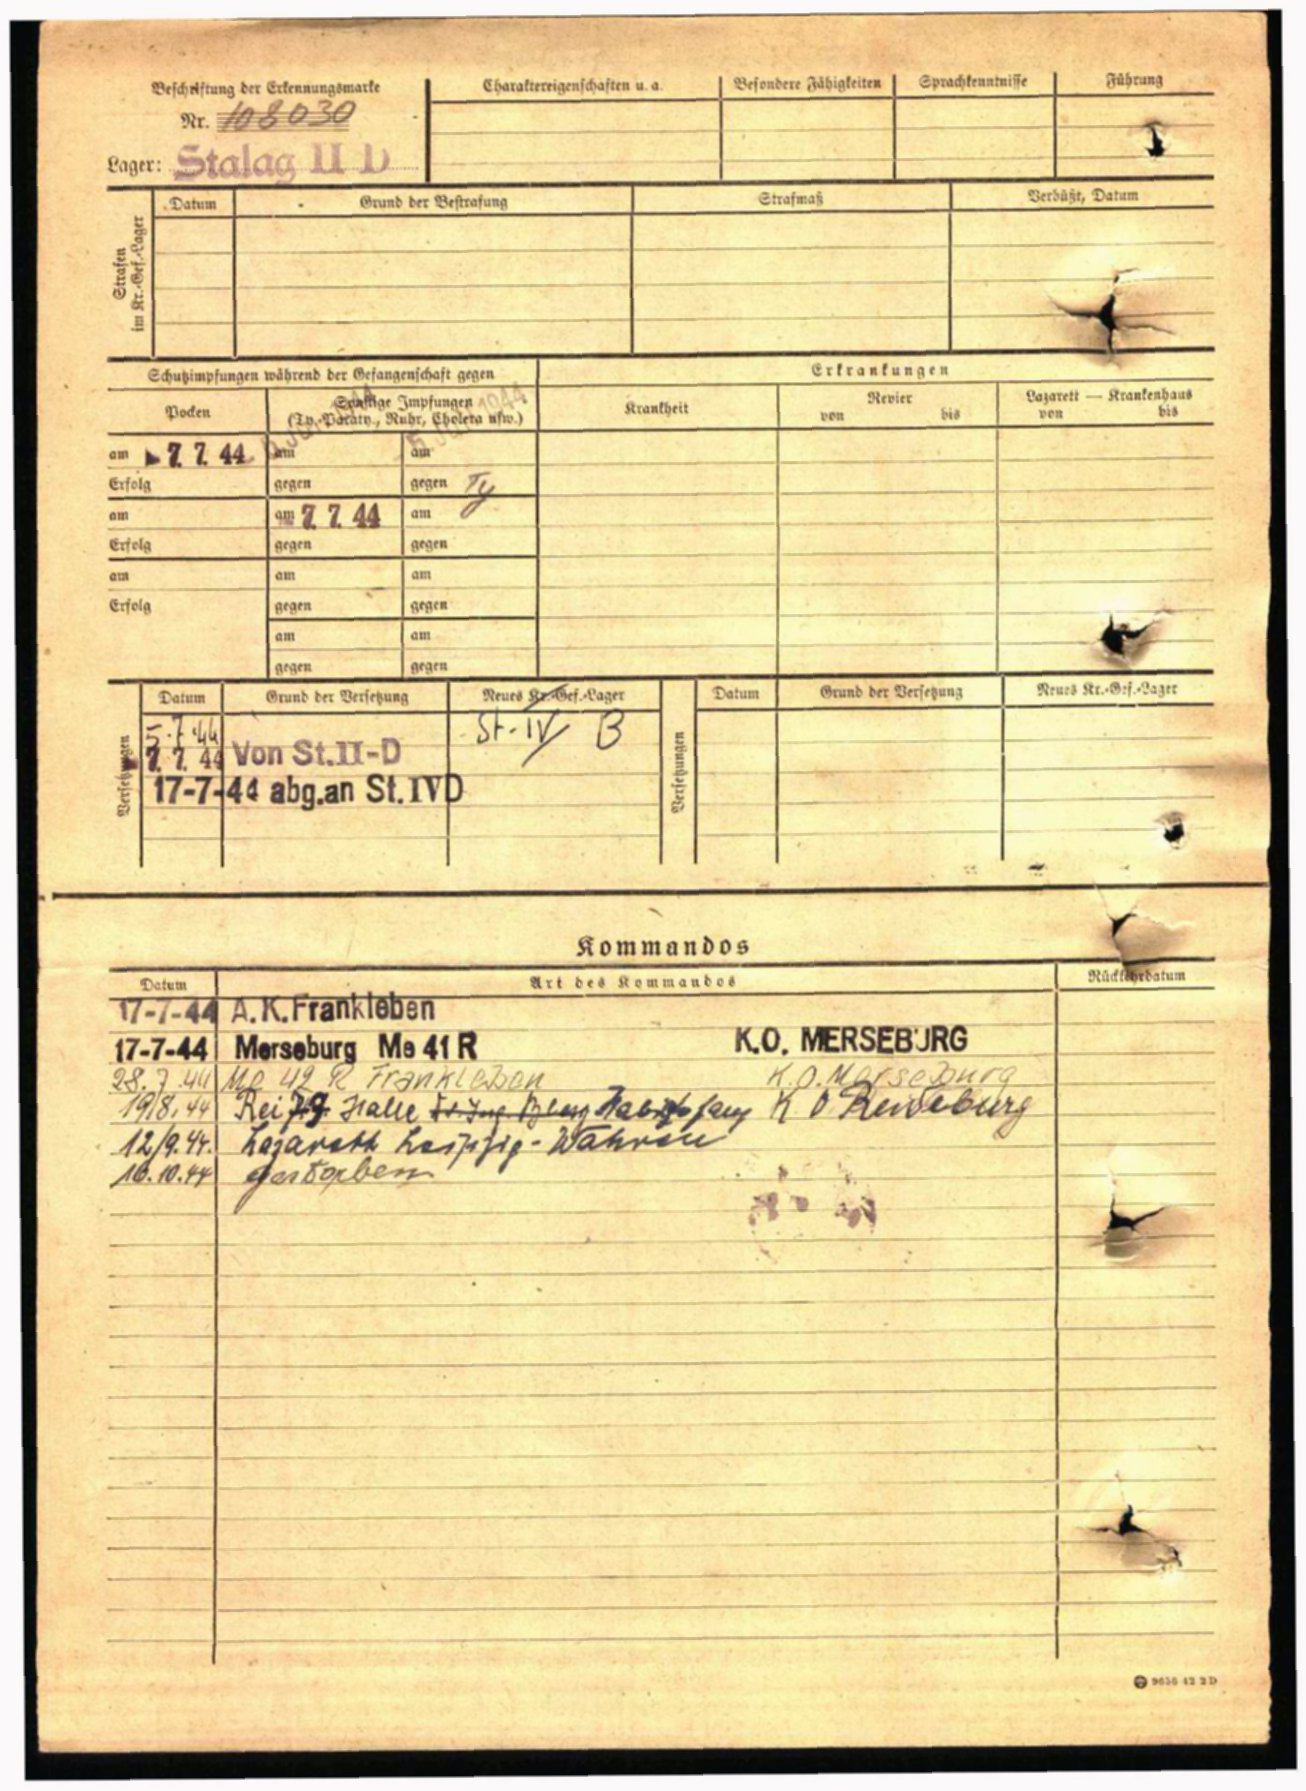 Beschriftung der Erkennungsmarke
Nr. 108030
Lager: Stalag II D
Charaktereigenschaften u. a.
Besondere Fähigkeiten
Sprachkenntnisse
Führung
Strafen im Kr.-Gef.-Lager
Datum
Grund der Bestrafung
Strafmaß
Verbüßt, Datum
Schutzimpfungen während der Gefangenschaft gegen
Erkrankungen
Pocken
Sonstige Impfungen
(Ty.-Paraty., Ruhr, Cholera usw.)
Krankheit
Revier
von bis
Lazarett — Krankenhaus
von bis
am 7. 7. 44 am am
Erfolg gegen gegen Ty
am am 7. 7. 44 am
Erfolg gegen gegen
am am am
Erfolg gegen gegen
am am
gegen gegen
Versetzungen
Datum Grund der Versetzung Neues Kr.-Gef.-Lager
5.7.44 St.-IV B
7. 7. 44 Von St.II-D
17-7-44 abg.an St.IVD
Versetzungen
Datum Grund der Versetzung Neues Kr.-Gef.-Lager
Kommandos
Datum Art des Kommandos Rückkehrdatum
17-7-44 A.K.Frankleben
17-7-44 Merseburg Me 41 R K.O. MERSEBURG
28.7.44 Me 42 R Frankleben K.O. Merseburg
19/8.44 Rei 79 Halle K O Merseburg
12/9.44. Lazarett Leipzig-Wahren
16.10.44 gestorben
9656 42 2 D